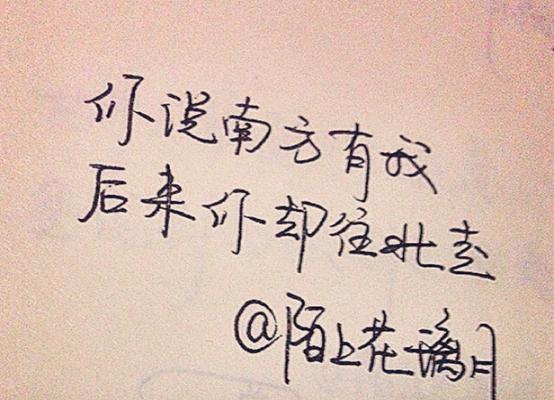 你说南方有我
后来你却往北走
@陌上花璃月